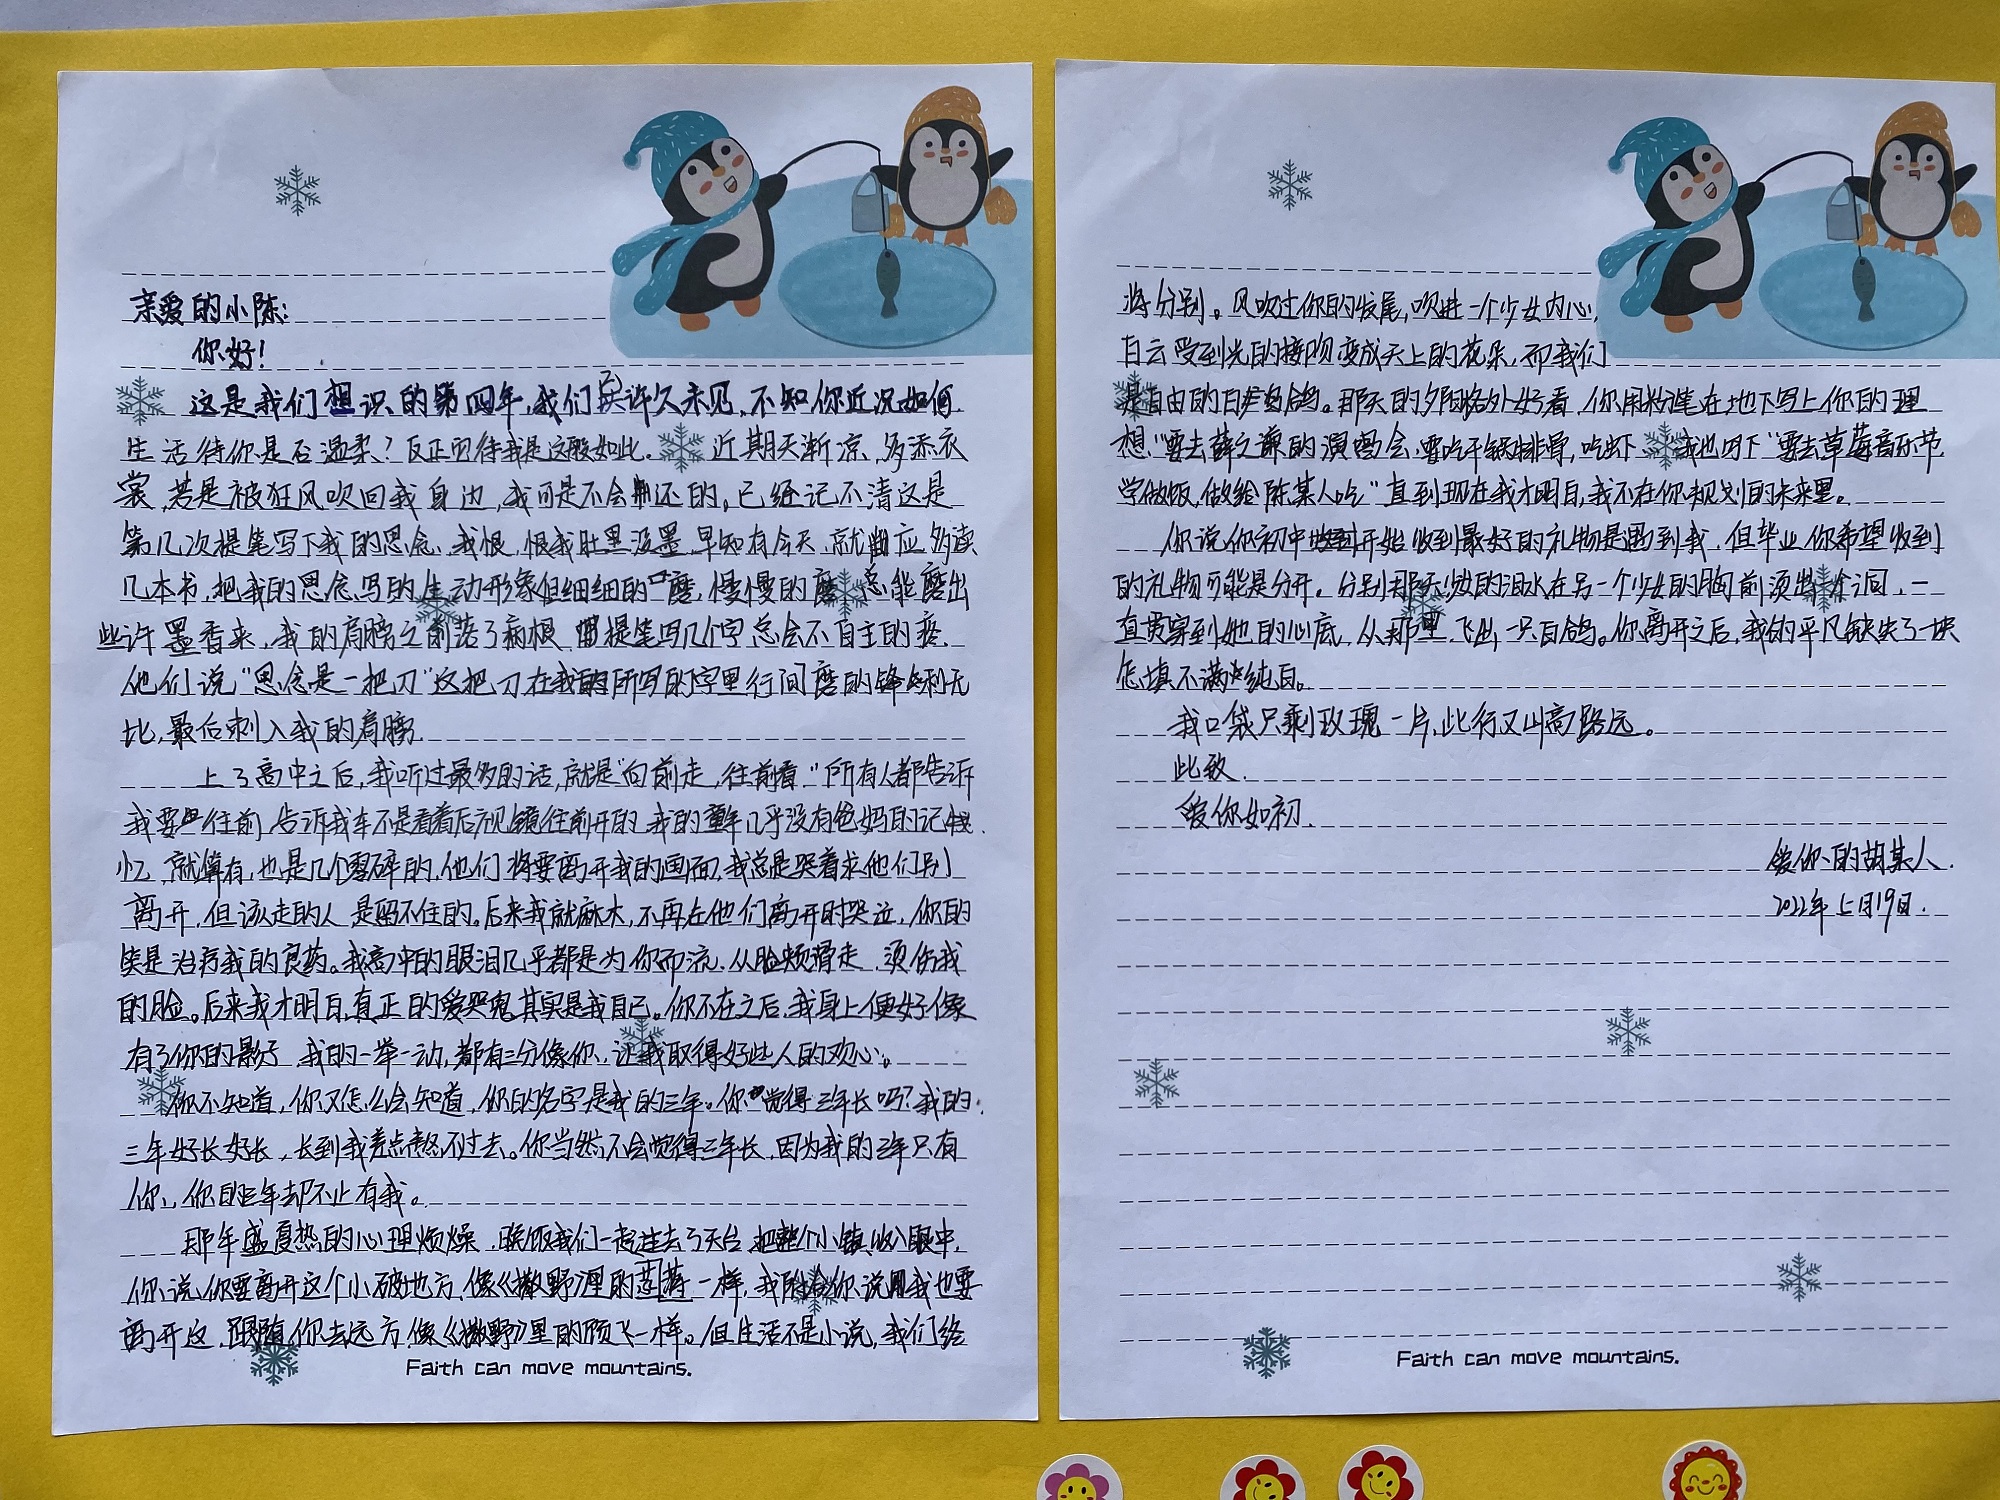 亲爱的小陈:
你好!
这是我们想识的第四年,我们已许久未见,不知你近况如何.
生活待你是否温柔?反正它待我是这般如此. 近期天渐凉,多添衣
裳,若是被狂风吹回我身边,我可是不会还的。已经记不清这是
第几次提笔写下我的思念,我恨,恨我肚里没墨,早知有今天,就应多读
几本书,把我的思念写的生动形象但细细的磨,慢慢的磨总能磨出
些许墨香来,我的肩膀之前落了病根,提笔写几个字总会不自主的疼.
他们说“思念是一把刀”这把刀在我的所写的字里行间磨的锋利无
比,最后刺入我的肩膀.
上了高中之后,我听过最多的话,就是“向前走,往前看.”所有人都告诉
我要往前,告诉我车不是看着后视镜往前开的,我的童年几乎没有爸妈的记
忆,就算有,也是几个零碎的,他们将要离开我的画面,我总是哭着求他们别
离开,但该走的人是妈不住的。后来我就麻木,不再在他们离开时哭泣,你的
笑是治疗我的良药。我高中的眼泪几乎都是为你而流,从脸颊滑走,烫伤我
的脸。后来我才明白,真正的爱哭鬼其实是我自己。你不在之后,我身上便好像
有了你的影子,我的一举一动,都有三分像你,让我取得好些人的欢心。
你不知道,你又怎么会知道,你的名字是我的三年。你觉得三年长吗?我的
三年好长好长,长到我差点熬不过去。你当然不会觉得三年长,因为我的三年只有
你,你的三年却不止有我。
那年盛夏热的心理烦燥,晚饭我们一起逃去了天台,把整个小镇收入眼中,
你说你要离开这个小破地方,像《撒野》里的蒋丞一样,我附给你说我也要
离开这,跟随你去远方,像《撒野》里的顾飞一样。但生活不是小说,我们终
Faith can move mountains.
将分别。风吹过你的发尾,吹进一个少女内心,
白云受到光的接吻变成天上的花朵,而我们
是自由的白鸽。那天的夕阳格外好看,你用粉笔在地下写上你的理
想“要去薛之谦的演唱会,要吃干锅排骨,吃虾”我也写下“要去草莓音乐节,
学做饭,做给陈某人吃”直到现在我才明白,我不在你规划的未来里。
你说你初中开始收到最好的礼物是遇到我,但毕业你希望收到
的礼物可能是分开。分别那天,你的泪水在另一个少女的胸前烫出个洞,一
直贯穿到她的心底,从那里飞出一只白鸽。你离开之后,我的平凡缺失了一块
怎填不满纯白。
我口袋只剩玫瑰一片,此行又山高路远。
此致.
爱你如初.
爱你的胡某人.
2022年5月19日.
Faith can move mountains.